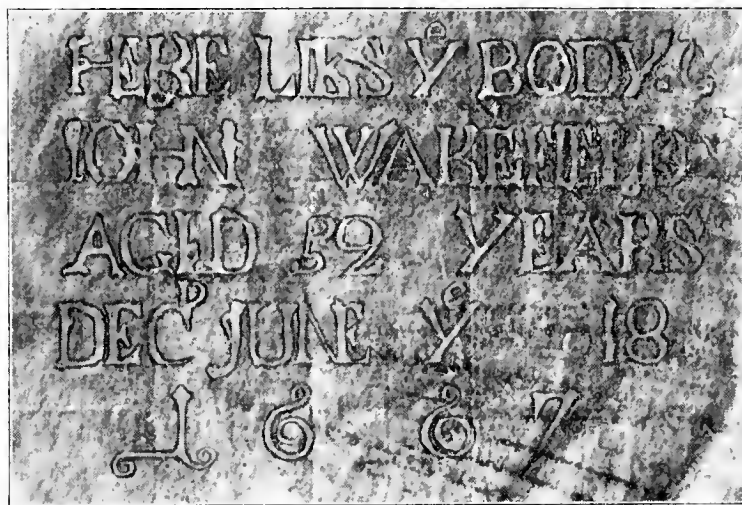 HERE LIES Yᵉ BODY
IOHN WAKEFIELD
AGED 52 YEARS
DECᴰ JUNE Yᵉ 18
1667